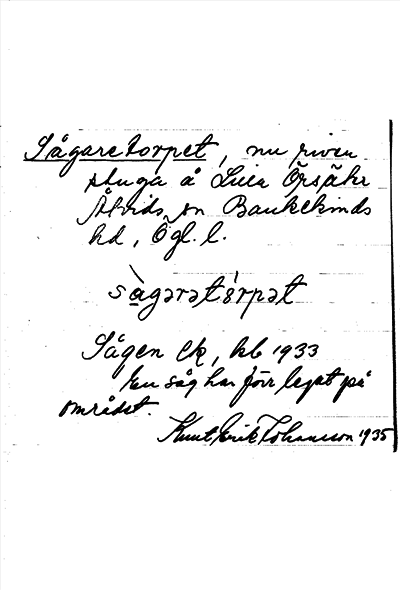 Sågaretorpet, nu riven
stuga å Lilla Örsåkr
Åtvids sn Bankekinds
hd, Ögl. l.
sàgaratórpat
Sågen ek, kb 1933
En såg har förr legat på
området.
Knut Erik Johansson 1935